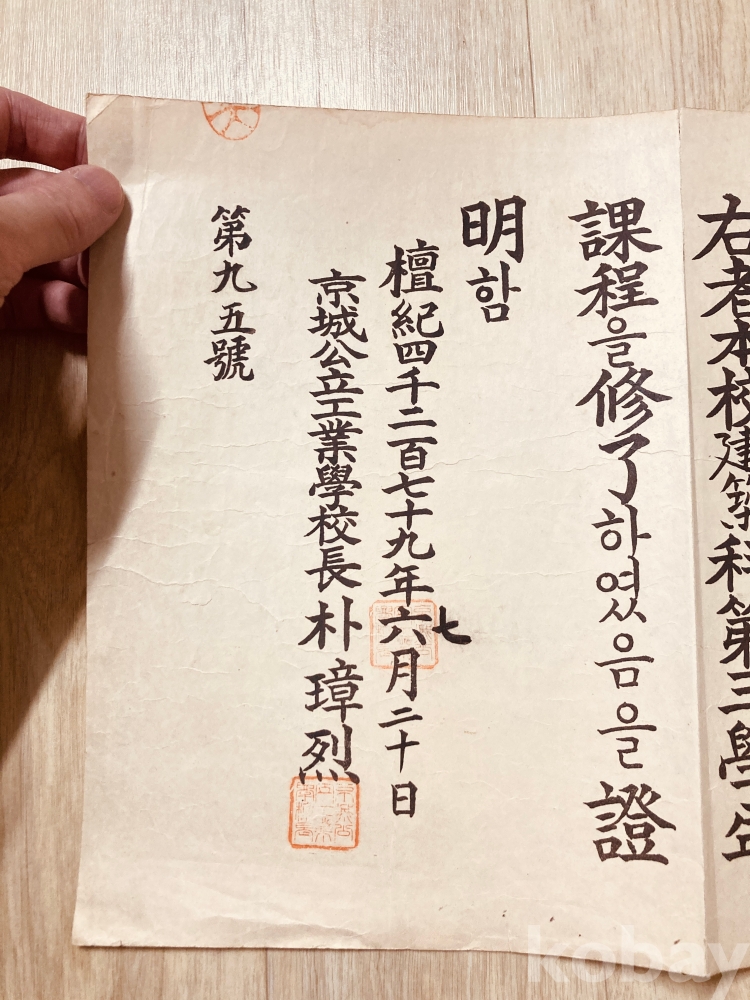 右者本校建築科第三學年
課程을修了하였음을證
明함
檀紀四千二百七十九年六月二十日
七
京城公立工業學校長朴璋烈
第九五號
kobay